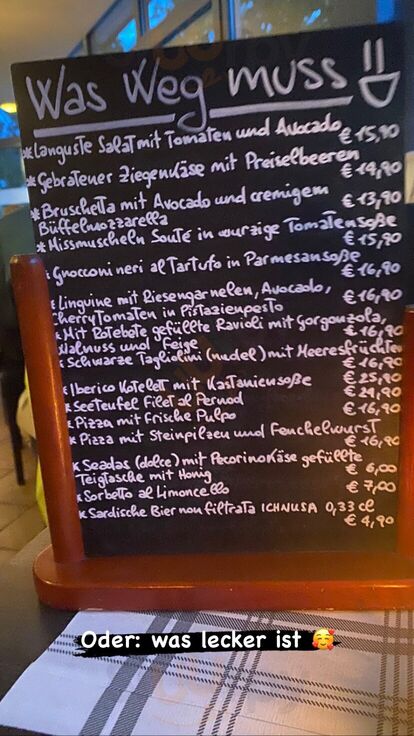 Was Weg muss
* Languste Salat mit Tomaten und Avocado € 15,90
* Gebratener Ziegenkäse mit Preiselbeeren € 14,90
* Bruschetta mit Avocado und cremigem € 13,90
Büffelmozzarella
* Missmuscheln Souté in wurzige Tomatensoße € 15,90
* Gnocconi neri al Tartufo in Parmesansoße € 16,90
* Linguine mit Riesengarnelen, Avocado, € 16,90
Cherry Tomaten in Pistazienpesto
* Mit Rotebete gefüllte Ravioli mit Gorgonzola, € 16,90
Walnuss und Feige
* Schwarze Tagliolini (nudel) mit Meeresfrüchten € 16,90
* Iberico Kotelett mit Kastaniensoße € 25,90
* Seeteufel Filet al Pernod € 24,90
* Pizza mit frische Pulpo € 16,90
* Pizza mit Steinpilzen und Fenchelwurst € 16,90
* Seadas (dolce) mit Pecorinokäse gefüllte
Teigtasche mit Honig € 6,00
* Sorbetto al Limoncello € 7,00
* Sardische Bier non filtrata ICHNUSA 0,33 cl
€ 4,90
Oder: was lecker ist 🥰